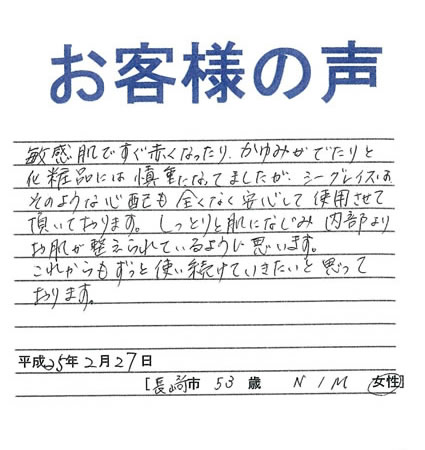 お客様の声
敏感肌ですぐ赤くなったり、かゆみがでたりと
化粧品には慎重になってましたが、シーグレイスは
そのような心配も全くなく安心して使用させて
頂いております。しっとりと肌になじみ内部より
お肌が整えられているように思います。
これからもずっと使い続けていきたいと思って
おります。
平成25年2月27日
[長崎市 53歳 N.I.M 女性]